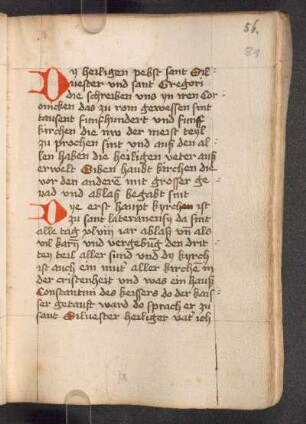 56.
81
Dy heiligen pebst sant Sil-
uester und sant Gregori
die schreiben uns yn iren Cor-
onicken das zu rom gewessen sint
tausent funfhundert und funff
kirchen die nw der meist teyl
zu prochen sint und auß den al-
len haben die heiligen veter auß
erwelt Siben haubt kirchen die
vor den anderen mit grosser ge-
nad und ablaß begabt sint
Dye erst haupt kyrchen ist
zu sant lateranensy da sint
alle tag xlviij iar ablaß vn̄ als
vil karn̄ und vergebūg den drit-
ten teil aller sund und dy kyrch
ist auch ein mut̓ aller kirchen̄ in
der cristenheit und was ein hauß
Constantini des keissers do der kai-
ser getaufft ward do sprach er zu
sant Siluester heiliger vat̓ ich